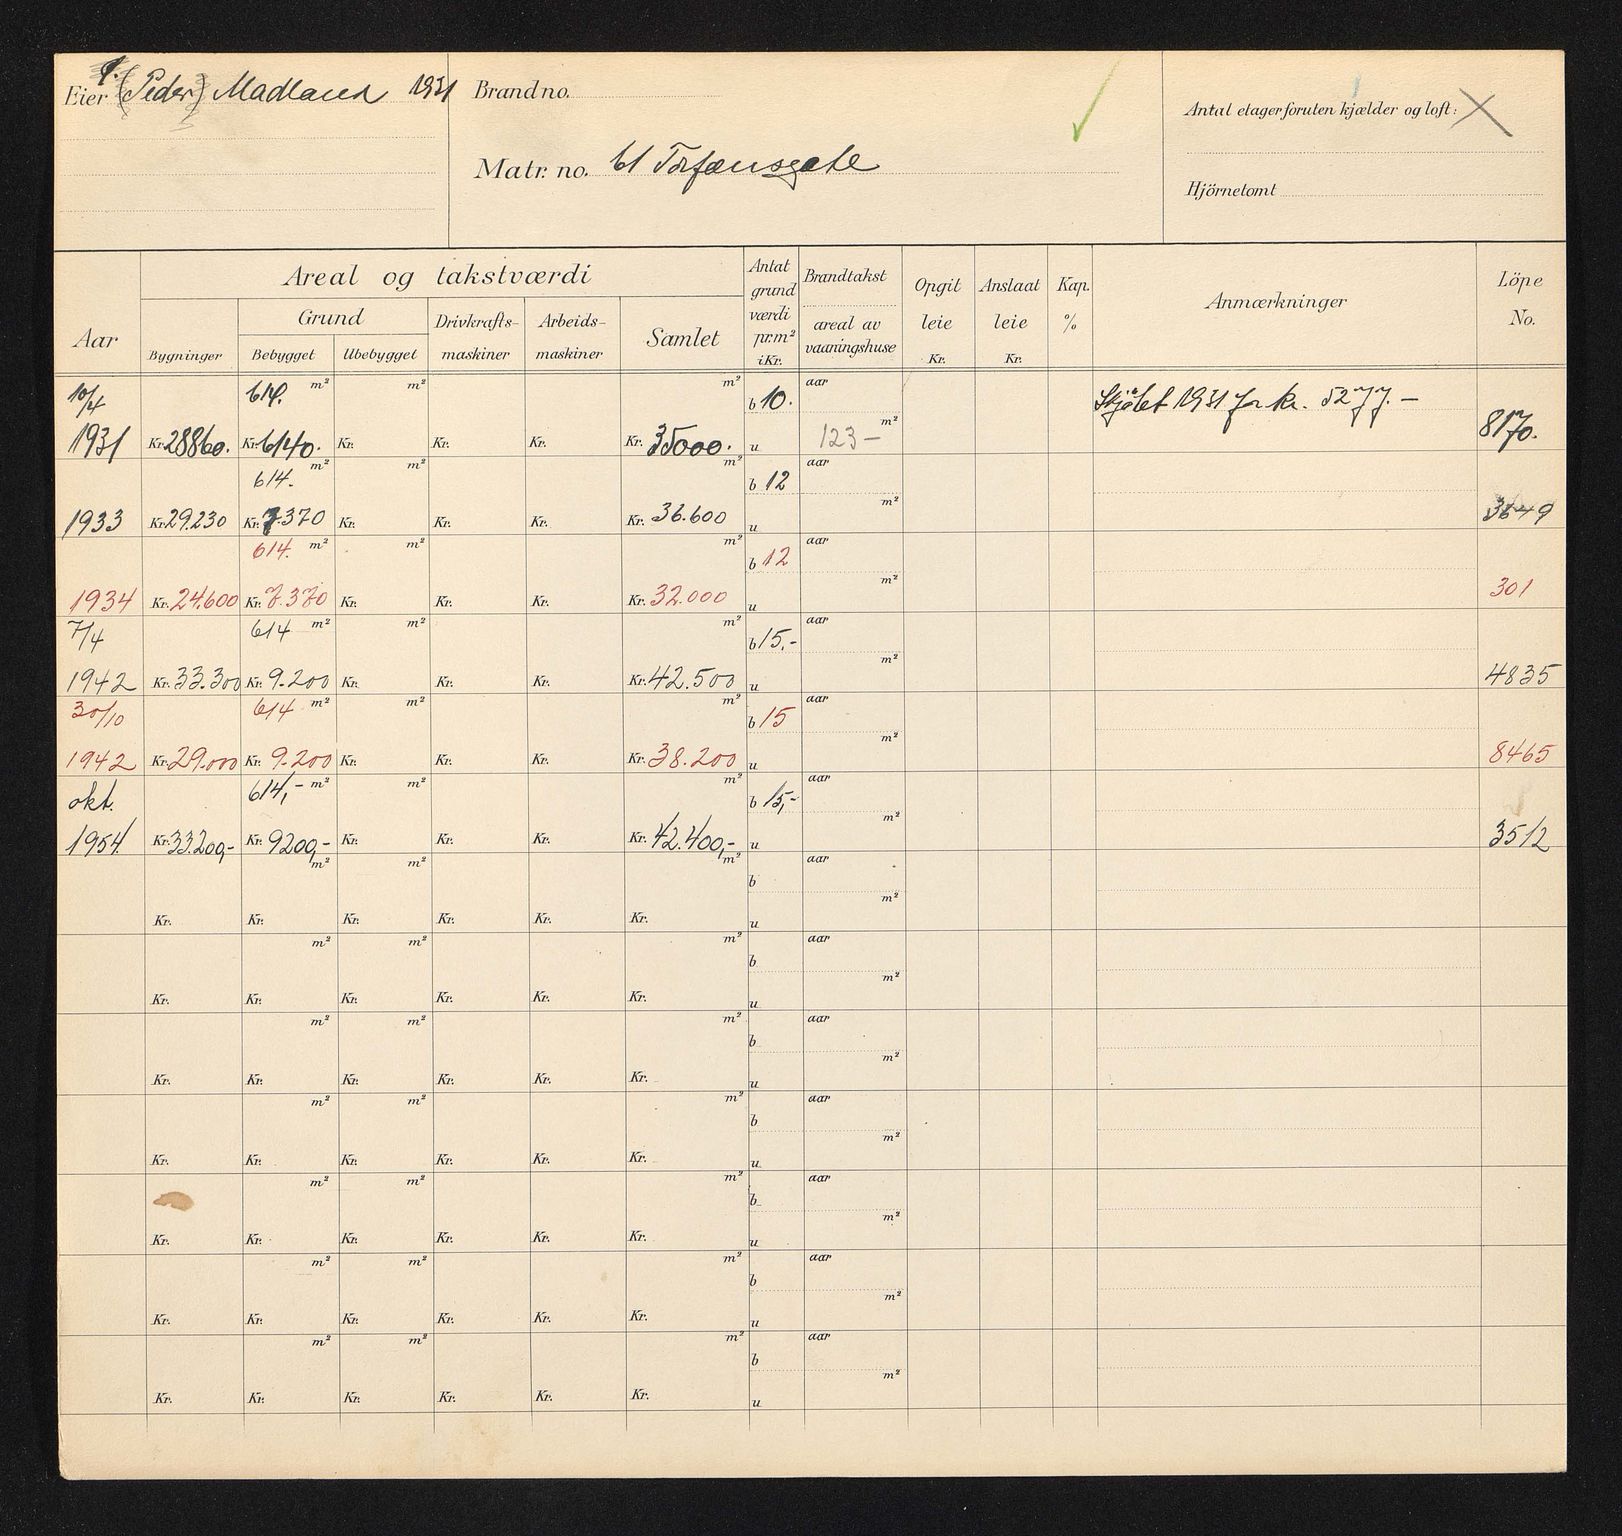 Eier (Peder) Madland 1931
Brand no.
Matr. no. 61 Torfæusgate
Antal etager foruten kjælder og loft:
Hjörnetomt
Aar
Areal og takstværdi
Grund
Bygninger
Bebygget
Ubebygget
Drivkrafts-
maskiner
Arbeids-
maskiner
Samlet
Antat
grund
værdi
pr.m²
i Kr.
Brandtakst
areal av
vaaningshuse
Opgit
leie
Kr.
Anslaat
leie
Kr.
Kap.
%
Anmærkninger
Löpe
No.
10/4 614. m² m² m² b 10. aar Skjötet 1931 for kr. 5277.-
1931 Kr. 28860. Kr. 6140. Kr. Kr. Kr. Kr. 35000. u 123- m² 8170.
614. m² m² m² b 12 aar
1933 Kr. 29.230 Kr. 7.370 Kr. Kr. Kr. Kr. 36.600 u m² 3649
614. m² m² m² b 12 aar
1934 Kr. 24.600 Kr. 7.370 Kr. Kr. Kr. Kr. 32.000 u m² 301
7/4 614 m² m² m² b 15,- aar
1942 Kr. 33.300 Kr. 9.200 Kr. Kr. Kr. Kr. 42.500 u m² 4835
30/10 614 m² m² m² b 15 aar
1942 Kr. 29.000 Kr. 9.200 Kr. Kr. Kr. Kr. 38.200 u m² 8465
okt. 614,- m² m² m² b 15,- aar
1954 Kr. 33.200,- Kr. 9200,- Kr. Kr. Kr. Kr. 42.400,- u m² 3512
m² m² m² b aar
Kr. Kr. Kr. Kr. Kr. Kr. u m²
m² m² m² b aar
Kr. Kr. Kr. Kr. Kr. Kr. u m²
m² m² m² b aar
Kr. Kr. Kr. Kr. Kr. Kr. u m²
m² m² m² b aar
Kr. Kr. Kr. Kr. Kr. Kr. u m²
m² m² m² b aar
Kr. Kr. Kr. Kr. Kr. Kr. u m²
m² m² m² b aar
Kr. Kr. Kr. Kr. Kr. Kr. u m²
m² m² m² b aar
Kr. Kr. Kr. Kr. Kr. Kr. u m²